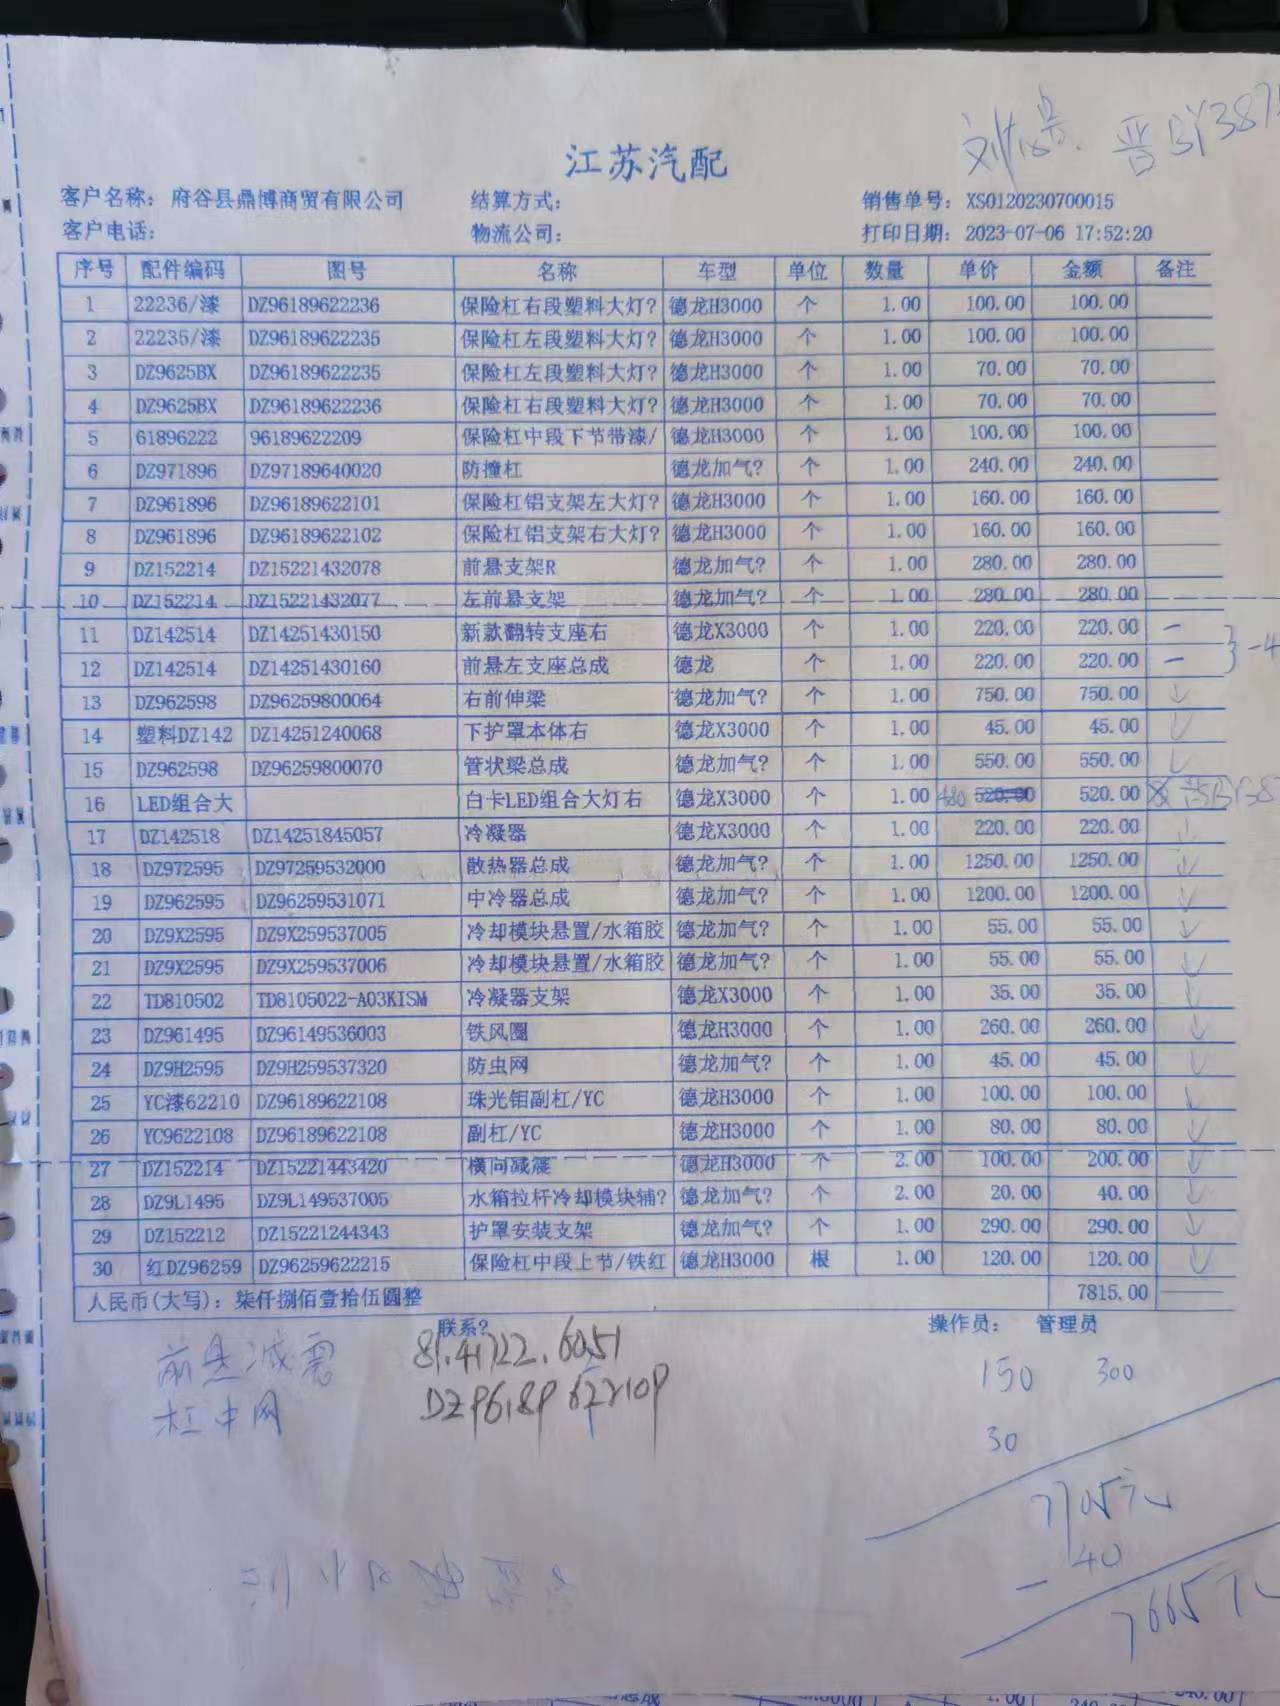 晋BY387
江苏汽配
客户名称: 府谷县鼎博商贸有限公司 结算方式: 销售单号: XS0120230700015
客户电话: 物流公司: 打印日期: 2023-07-06 17:52:20
序号 配件编码 图号 名称 车型 单位 数量 单价 金额 备注
1 22236/漆 DZ96189622236 保险杠右段塑料大灯? 德龙H3000 个 1.00 100.00 100.00
2 22235/漆 DZ96189622235 保险杠左段塑料大灯? 德龙H3000 个 1.00 100.00 100.00
3 DZ9625BX DZ96189622235 保险杠左段塑料大灯? 德龙H3000 个 1.00 70.00 70.00
4 DZ9625BX DZ96189622236 保险杠右段塑料大灯? 德龙H3000 个 1.00 70.00 70.00
5 61896222 96189622209 保险杠中段下节带漆/ 德龙H3000 个 1.00 100.00 100.00
6 DZ971896 DZ97189640020 防撞杠 德龙加气? 个 1.00 240.00 240.00
7 DZ961896 DZ96189622101 保险杠铝支架左大灯? 德龙H3000 个 1.00 160.00 160.00
8 DZ961896 DZ96189622102 保险杠铝支架右大灯? 德龙H3000 个 1.00 160.00 160.00
9 DZ152214 DZ15221432078 前悬支架R 德龙加气? 个 1.00 280.00 280.00
10 DZ152214 DZ15221432077 左前悬支架 德龙加气? 个 1.00 280.00 280.00
11 DZ142514 DZ14251430150 新款翻转支座右 德龙X3000 个 1.00 220.00 220.00 —
12 DZ142514 DZ14251430160 前悬左支座总成 德龙 个 1.00 220.00 220.00 — } -4
13 DZ962598 DZ96259800064 右前伸梁 德龙加气? 个 1.00 750.00 750.00
14 塑料DZ142 DZ14251240068 下护罩本体右 德龙X3000 个 1.00 45.00 45.00
15 DZ962598 DZ96259800070 管状梁总成 德龙加气? 个 1.00 550.00 550.00
16 LED组合大 白卡LED组合大灯右 德龙X3000 个 1.00 520.00 520.00
17 DZ142518 DZ14251845057 冷凝器 德龙X3000 个 1.00 220.00 220.00
18 DZ972595 DZ97259532000 散热器总成 德龙加气? 个 1.00 1250.00 1250.00
19 DZ962595 DZ96259531071 中冷器总成 德龙加气? 个 1.00 1200.00 1200.00
20 DZ9X2595 DZ9X259537005 冷却模块悬置/水箱胶 德龙加气? 个 1.00 55.00 55.00
21 DZ9X2595 DZ9X259537006 冷却模块悬置/水箱胶 德龙加气? 个 1.00 55.00 55.00
22 TD810502 TD8105022-A03KISM 冷凝器支架 德龙X3000 个 1.00 35.00 35.00
23 DZ961495 DZ96149536003 铁风圈 德龙H3000 个 1.00 260.00 260.00
24 DZ9H2595 DZ9H259537320 防虫网 德龙加气? 个 1.00 45.00 45.00
25 YC漆62210 DZ96189622108 珠光钼副杠/YC 德龙H3000 个 1.00 100.00 100.00
26 YC9622108 DZ96189622108 副杠/YC 德龙H3000 个 1.00 80.00 80.00
27 DZ152214 DZ15221443420 横向减震 德龙H3000 个 2.00 100.00 200.00
28 DZ9L1495 DZ9L149537005 水箱拉杆冷却模块辅? 德龙加气? 个 2.00 20.00 40.00
29 DZ152212 DZ15221244343 护罩安装支架 德龙加气? 个 1.00 290.00 290.00
30 红DZ96259 DZ96259622215 保险杠中段上节/铁红 德龙H3000 根 1.00 120.00 120.00
人民币(大写): 柒仟捌佰壹拾伍圆整 7815.00
联系? 操作员: 管理员
前悬减震 81.41722.6051 150 300
杠中网 DZ96189622109 30
7705元
- 40
7665元